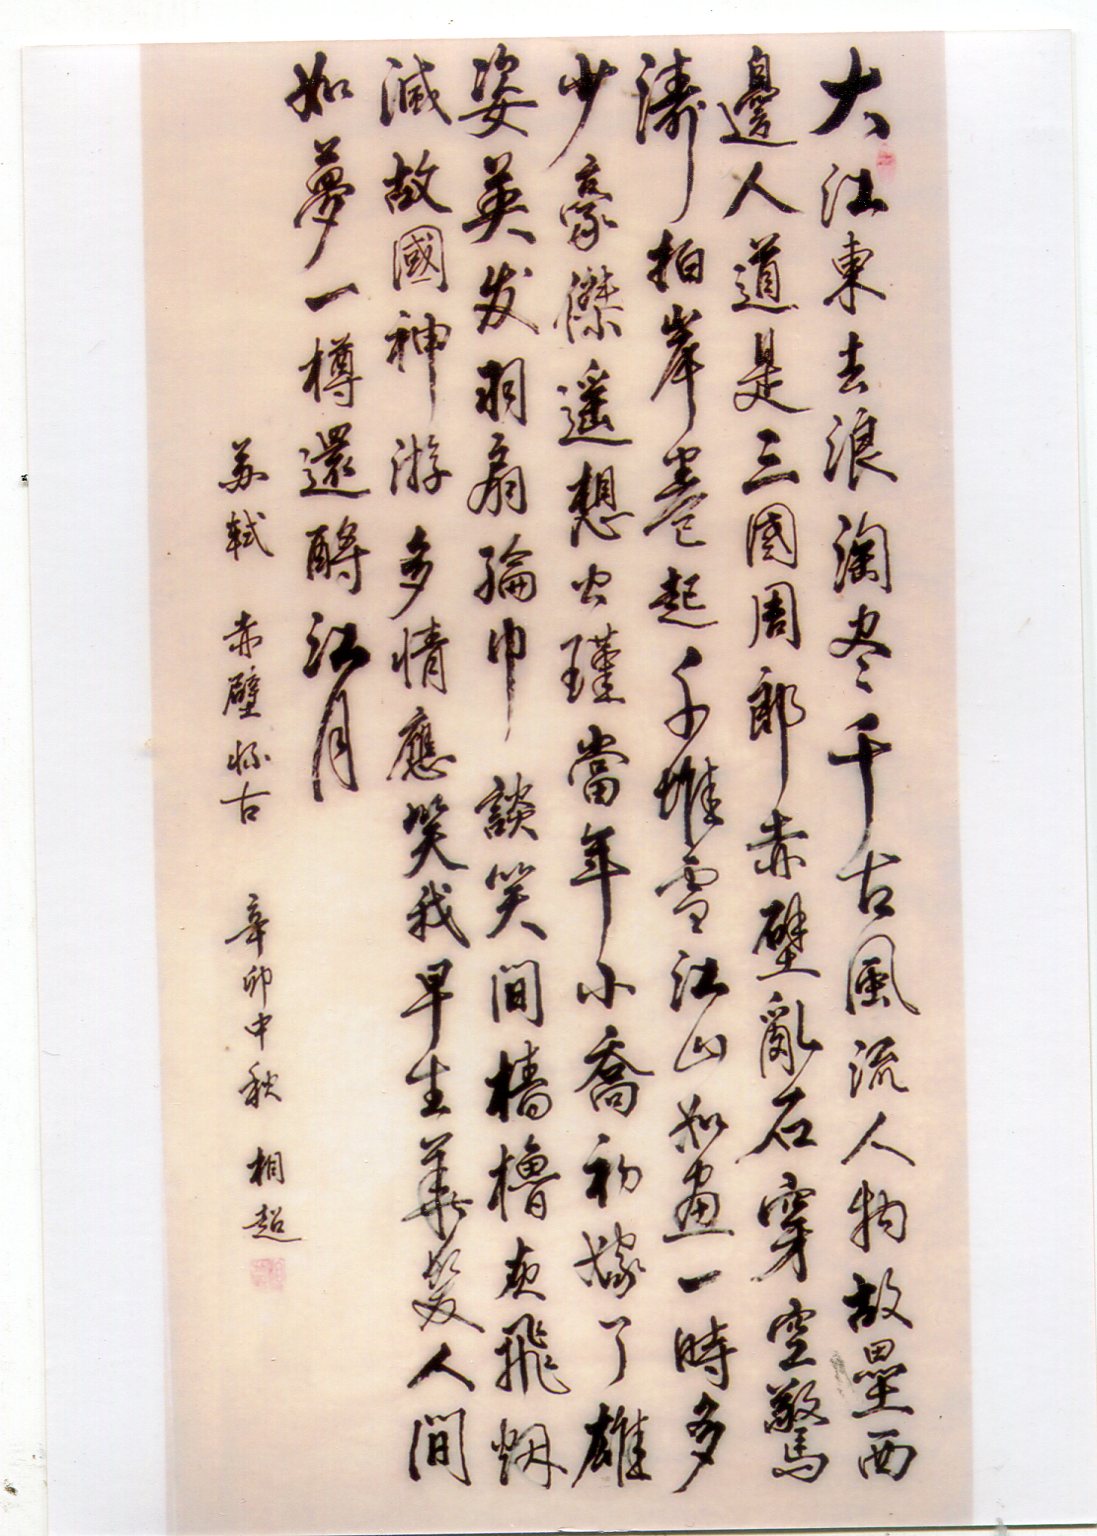 大江東去浪淘尽千古風流人物故壘西
邊人道是三國周郎赤壁亂石穿空驚
濤拍岸卷起千堆雪江山如畫一時多
少豪傑遥想公瑾當年小喬初嫁了雄
姿英发羽扇綸巾談笑間檣櫓灰飛烟
滅故國神游多情應笑我早生華髪人間
如夢一樽還酹江月
苏軾 赤壁怀古 辛卯中秋 相超